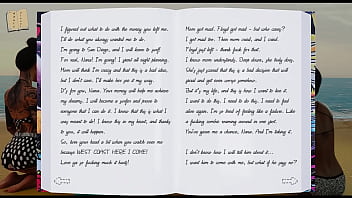 I figured out what to do with the money you left me.
I'll do what you always wanted me to do.
I'm going to San Diego, and I will learn to surf!
For real, Nana! I'm going! I spent all night planning.
Mom will think I'm crazy and that this is a bad idea,
but I don't care. I'll make her see it my way.
It's for you, Nana. Your money will help me achieve
my dreams. I will become a surfer and prove to
everyone that I can do it. I know that this is what I
was meant to do! I know this in my heart, and thanks
to you, it will happen.
So, turn your head a lot when you watch over me
because WEST COAST HERE I COME!
Love ya so fucking much it hurts!
Mom got mad. Floyd got mad - but who cares?
I got mad too. Then mom cried, and I cried.
Floyd just left - thank fuck for that.
I know mom understands. Deep down, she truly does.
She's just scared that this is a bad decision that will
pass and get even worse somehow.
But it's my life, and this is how I want to live it.
I want to do this, I need to do this. I need to feel
alive again. I'm so tired of feeling like a failure. Like
a fucking zombie running around in one spot.
You've given me a chance, Nana. And I'm taking it.
I don't know how I will tell him about it...
I want him to come with me, but what if he says no?